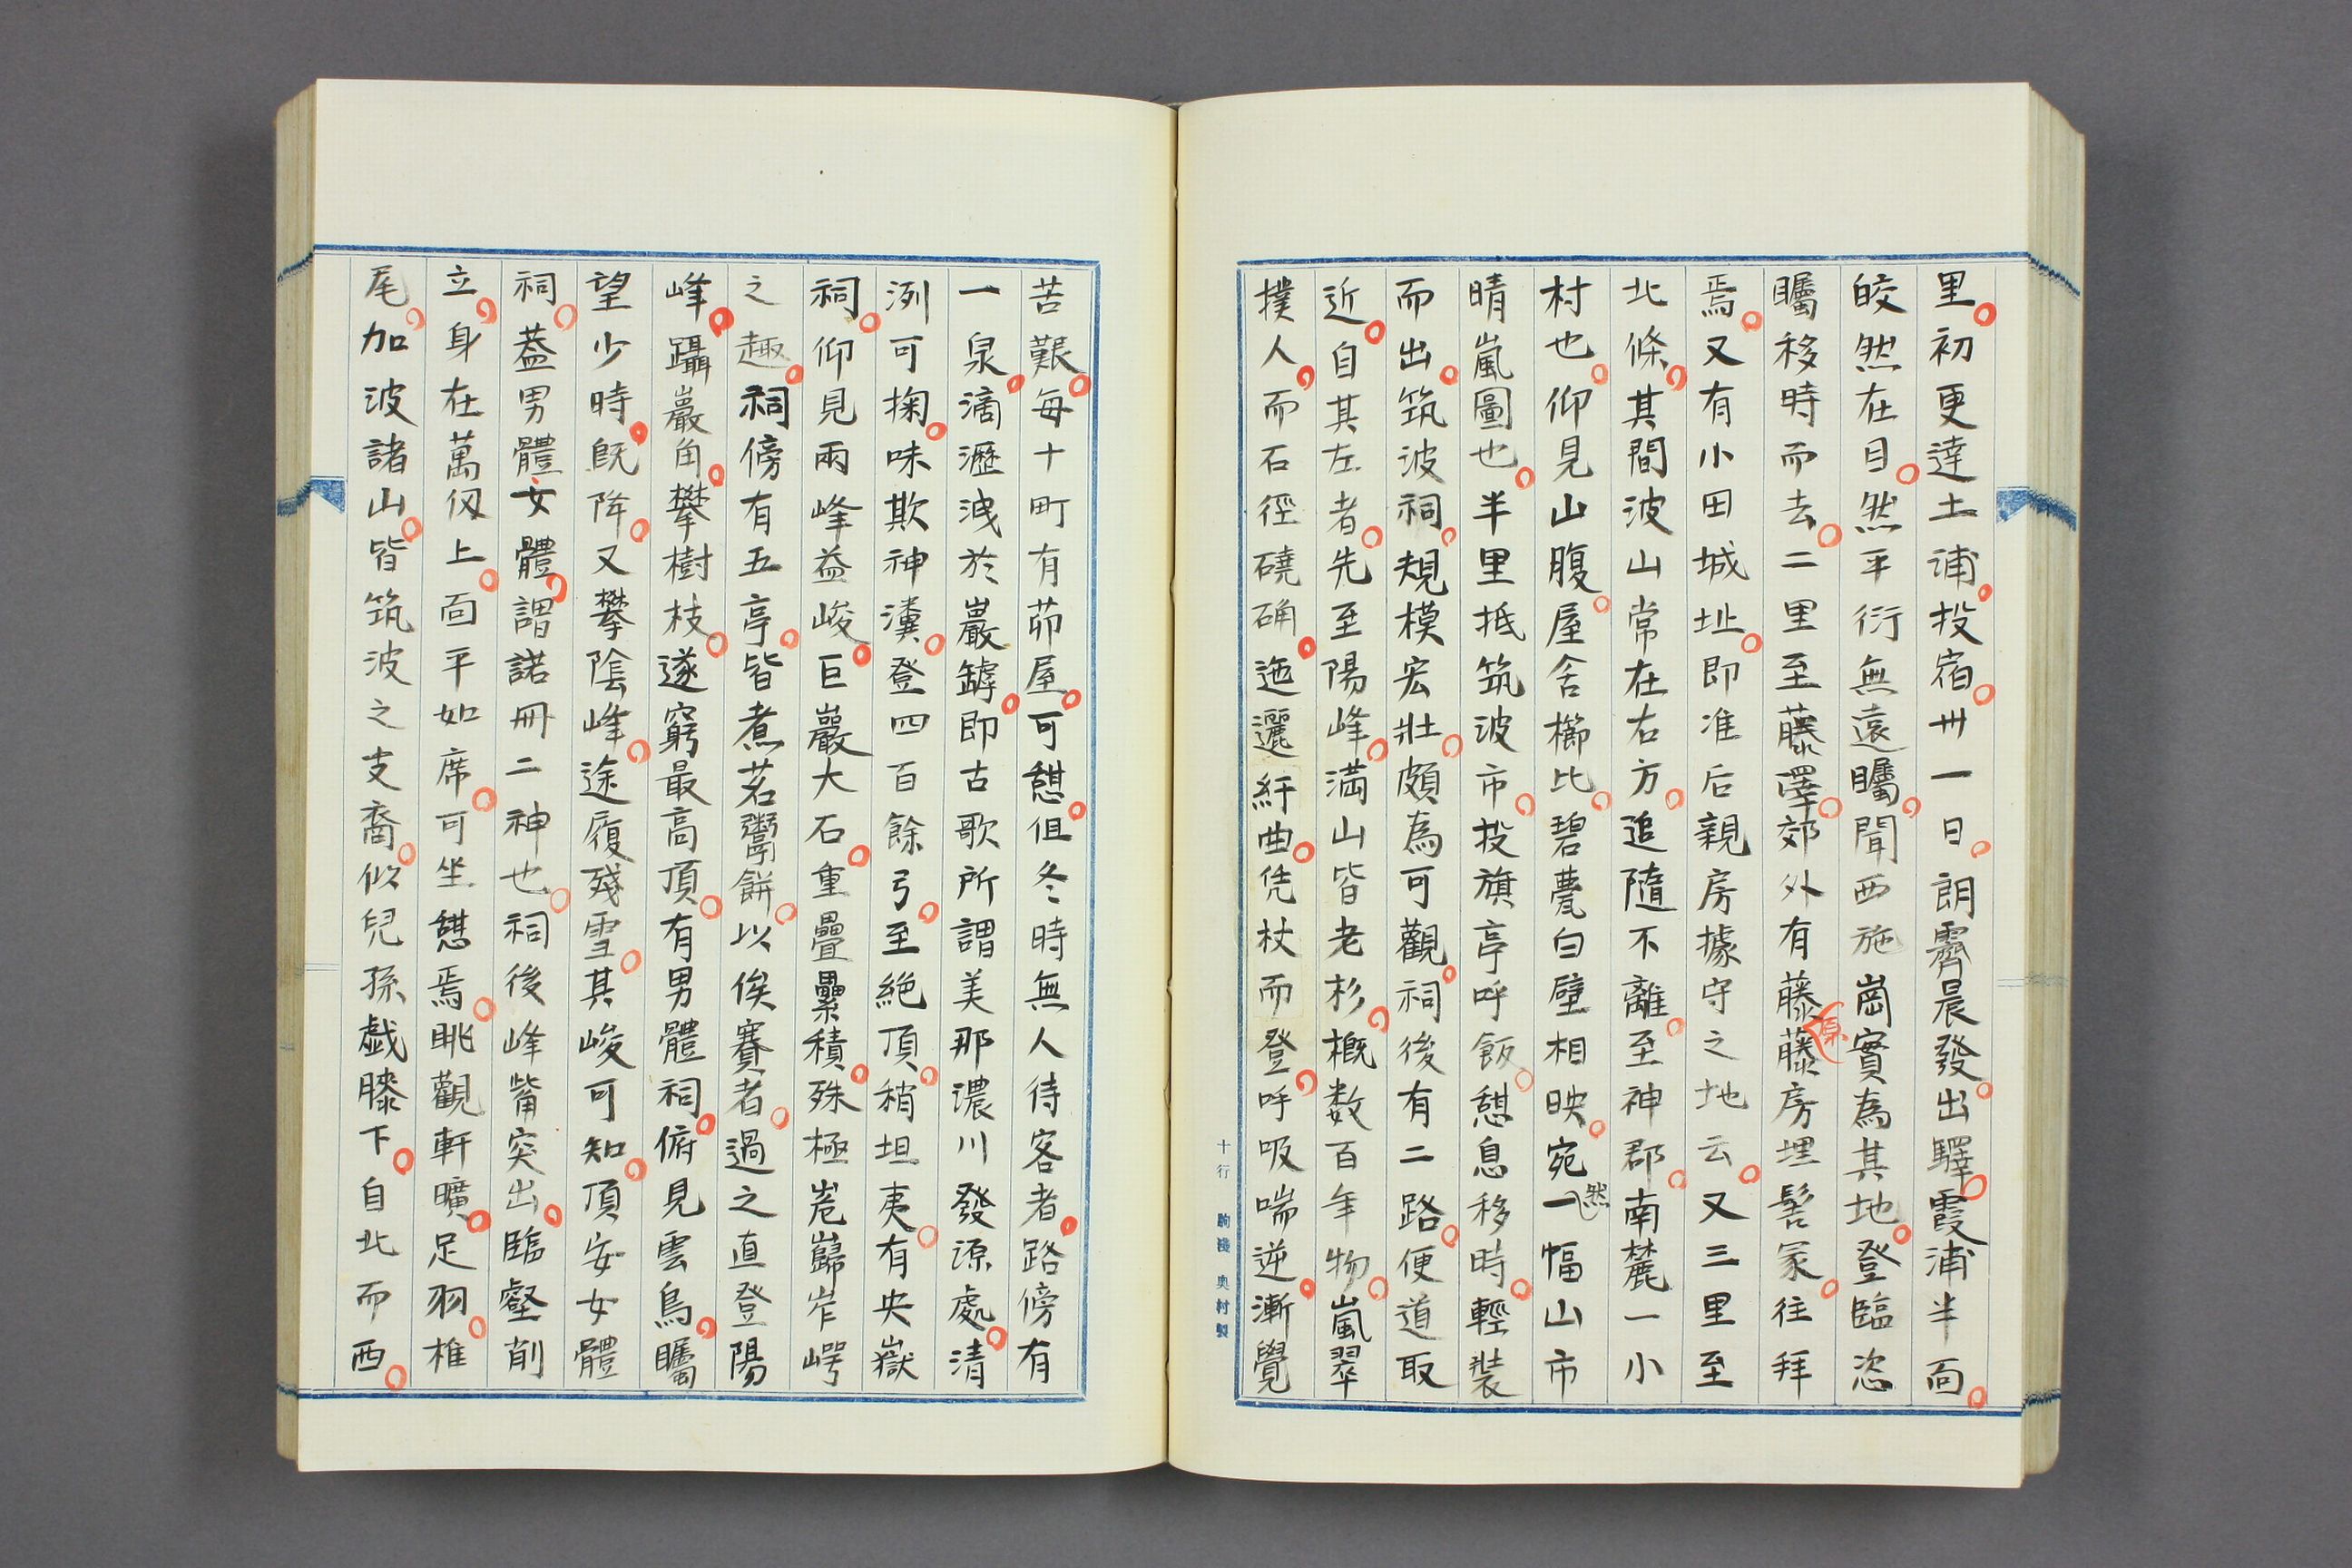 里。初更達土浦。投宿。卅一日。朗霽晨發。出驛。霞浦半面。
皎然在目。然平衍無遠矚。聞西施崗實為其地。登臨恣
矚移時而去。二里至藤澤。郊外有藤藤房埋髻冢。往拜
原
焉。又有小田城址。即准后親房據守之地云。又三里至
北條。其間波山常在右方。追隨不離。至神郡。南麓一小
村也。仰見山腹。屋舍櫛比。碧甍白壁相映。宛一幅山市
然
晴嵐圖也。半里抵筑波市。投旗亭呼飯。憩息移時。輕裝
而出。筑波祠。規模宏壯。頗為可觀。祠後有二路。便道取
近。自其左者。先至陽峰。満山皆老杉。概数百年物。嵐翠
撲人。而石徑磽确。迤邐紆曲。凭杖而登。呼吸喘逆。漸覺
十行 奥村製
苦艱。每十町有茆屋。可憩。但冬時無人待客者。路傍有
一泉。滴瀝洩於巖罅。即古歌所謂美那濃川發源處。清
洌可掬。味欺神瀵。登四百餘弓。至絶頂。稍坦夷。有央嶽
祠。仰見兩峰益峻。巨巖大石。重疊纍積。殊極嵬巋岝崿
之趣。祠傍有五亭。皆煮茗鬻餅。以俟賽者。過之直登陽
峰。躡巖角。攀樹枝。遂窮最高頂。有男體祠。俯見雲鳥。矚
望少時。既降。又攀陰峰。途履殘雪。其峻可知。頂安女體
祠。葢男體女體。謂諾冊二神也。祠後峰觜突出。臨壑削
立。身在萬仭上。面平如席。可坐憩焉。眺觀軒曠。足羽。椎
尾。加波諸山。皆筑波之支裔。似兒孫戯膝下。自北而西。